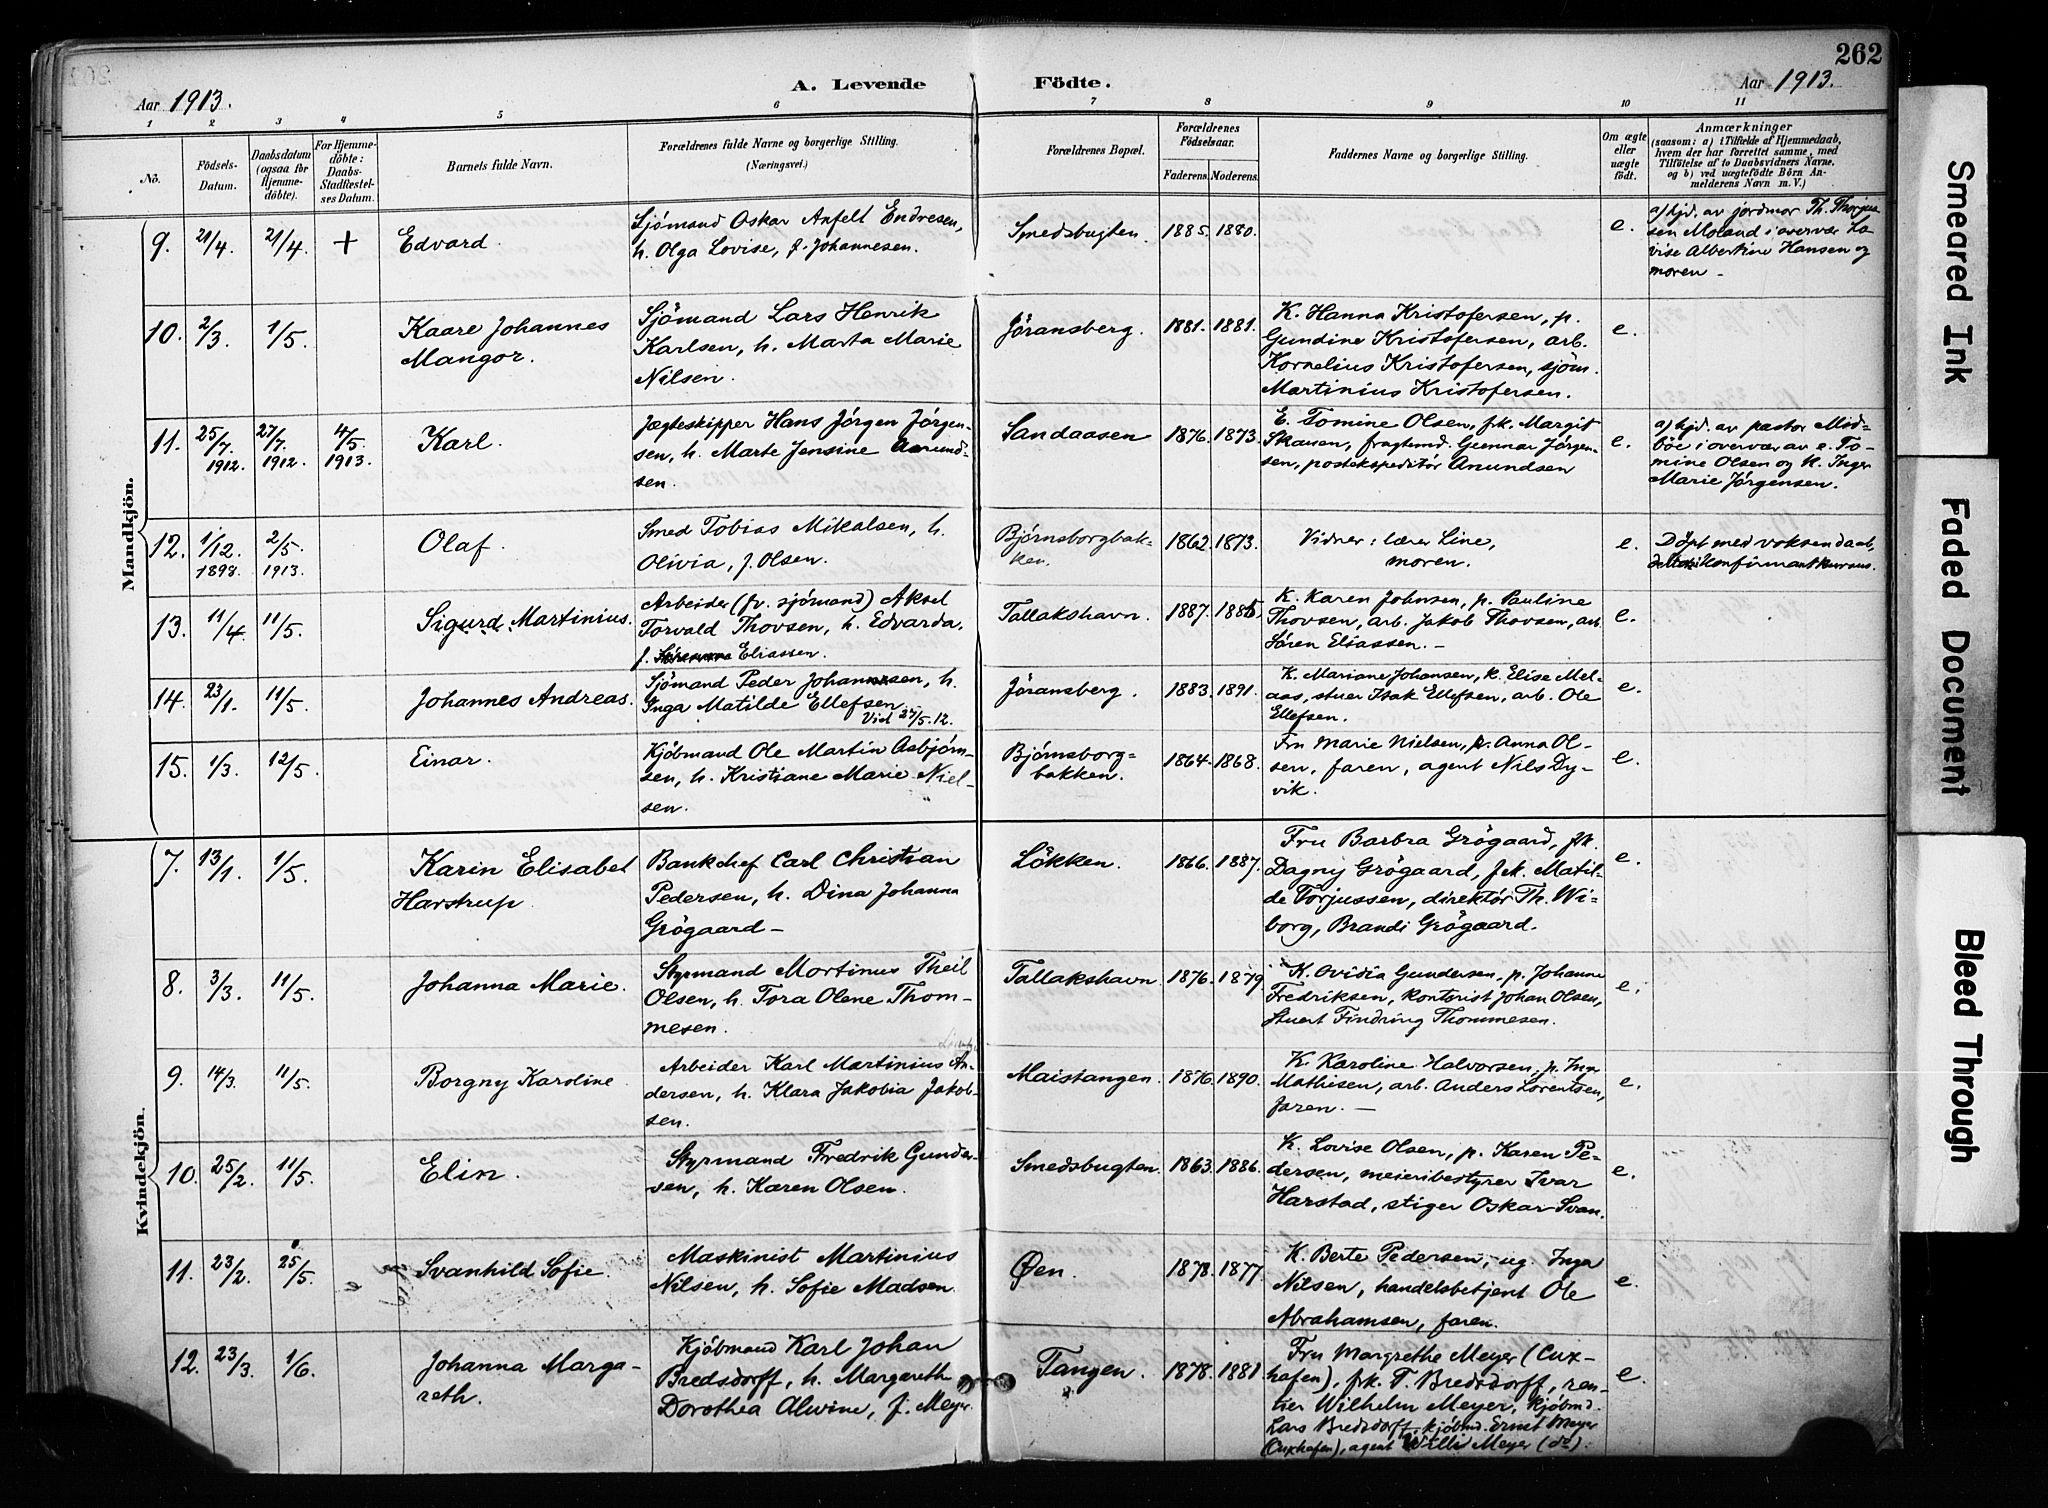 262
Aar 1913.
A. Levende Födte.
Aar 1913.
1 2 3 4 5 6 7 8 9 10 11
No.
Födsels-Datum.
Daabsdatum (ogsaa for Hjemmedöbte).
For Hjemmedöbte: Daabs-Stadfæstelses Datum.
Barnets fulde Navn.
Forældrenes fulde Navne og borgerlige Stilling. (Næringsvei.)
Forældrenes Bopæl.
Forældrenes Födselsaar.
Faderens. Moderens.
Faddernes Navne og borgerlige Stilling.
Om ægte eller uægte födt.
Anmærkninger
(saasom: a) i Tilfælde af Hjemmedaab,
hvem der har forrettet samme, med
Tilföielse af to Daabsvidners Navne.
og b) ved uægtefödte Börn Anmelderens Navn m. V.)
Mandkjön.
9. 21/4. 21/4. + Edvard.
Sjömand Oskar Anfelt Endresen,
h. Olga Lovise, f. Johannesen.
Smedsbugten. 1885. 1880. e.
a) hjd. av jordmor Th. Thorjus-
sen Moland i overvær Lo-
vise Albertine Hansen og
moren –
10. 2/3. 1/5. Kaare Johannes
Mangor.
Sjömand Lars Henrik
Karlsen, h. Marta Marie
Nilsen.
Jöransberg. 1881. 1881.
K. Hanna Kristofersen, p.
Gundine Kristofersen, arb.
Kornelius Kristofersen, sjöm.
Martinius Kristofersen.
e.
11. 25/7. 1912. 27/7. 1912. 4/5. 1913. Karl.
Jægteskipper Hans Jörgen Jörgen-
sen, h. Marte Jensine Anund-
sen.
Sandaasen 1876. 1873.
E. Tomine Olsen, frk. Margit
Skausen, fragtemd. Gunnar Jörgen-
sen, postekspeditör Anundsen
e.
a) hjd. av pastor Mid-
böe i overvær av e. To-
mine Olsen og K. Inger
Marie Jörgensen.
12. 1/12. 1898. 2/5. 1913. Olaf.
Smed Tobias Mikalsen, h.
Olivia, f. Olsen.
Bjørnsborgbak-
ken. 1862. 1873.
Vidner: lærer Line,
moren.
e.
Döpt med voksendaab,
konfirmantkursus.
13. 11/4. 11/5. Sigurd Martinius.
Arbeider (fv. sjömand) Aksel
Torvald Thovsen, h. Edvarda,
f. Eliassen.
Tallakshavn. 1887. 1885.
K. Karen Johnsen, p. Pauline
Thovsen, arb. Jakob Thovsen, arb.
Sören Eliassen. –
e.
14. 23/1. 11/5. Johannes Andreas.
Sjömand Peder Johannesen, h.
Inga Matilde Ellefsen.
Vid 27/5. 12.
Jöransberg. 1883. 1891.
K. Mariane Johansen, K. Elise Mel-
aas, stuer Isak Ellefsen, arb. Ole
Ellefsen.
e.
15. 1/3. 12/5. Einar.
Kjöbmand Ole Martin Asbjørn-
sen, h. Kristiane Marie Niel-
sen.
Bjørnsborg-
bakken. 1864. 1868.
Fru Marie Nielsen, p. Anna Ol-
sen, faren, agent Nils Dy-
vik.
e.
Kvindekjön.
7. 13/1. 1/5. Karin Elisabet
Harstrup
Bankchef Carl Christian
Pedersen, h. Dina Johanna
Grögaard –
Lökken. 1866. 1887.
Fru Barbra Grögaard, frk.
Dagny Grögaard, frk. Matil-
de Torjussen, direktör Th. Wi-
borg, Brandi Grögaard.
e.
8. 3/3. 11/5. Johanna Marie.
Styrmand Mortinus Theil
Olsen, h. Tora Olene Thom-
mesen.
Tallakshavn. 1876. 1879
K. Ovidia Gundersen, p. Johanne
Fredriksen, Kontorist Johan Olsen,
stuert Findring Thommesen.
e.
9. 14/3. 11/5. Borgny Karoline.
Arbeider Karl Martinius An-
dersen, h. Klara Jakobia Jakob-
sen.
Maistangen. 1876. 1890.
K. Karoline Halvorsen, p. Inga
Mathisen, arb. Anders Lorentsen,
faren. –
e.
10. 25/2. 11/5. Elin.
Styrmand Fredrik Gunder-
sen, h. Karen Olsen.
Smedsbugten. 1863. 1886.
K. Lovise Olsen, p. Karen Pe-
dersen, meieribestyrer Ivar
Harstad, stiger Oskar Svan.
e.
11. 23/2. 25/5. Svanhild Sofie.
Maskinist Martinius
Nilsen, h. Sofie Madsen.
Øen. 1878. 1877.
K. Berte Pedersen, ug. Inga
Nilsen, handelsbetjent Ole
Abrahamsen, faren.
e.
12. 23/3. 1/6. Johanna Marga-
reth.
Kjöbmand Karl Johan
Bredsdorff, h. Margareth
Dorothea Alwine, f. Meyer.
Tangen. 1878. 1881
Fru Margrethe Meyer (Cux-
hafen), frk. T. Bredsdorff, ren-
tier Wilhelm Meyer, kjöbmd.
Lars Bredsdorff, kjöbmd. Ernst Meyer
(Cuxhafen), agent Willi Meyer (do).
e.
Smeared Ink
Faded Document
Bleed Through